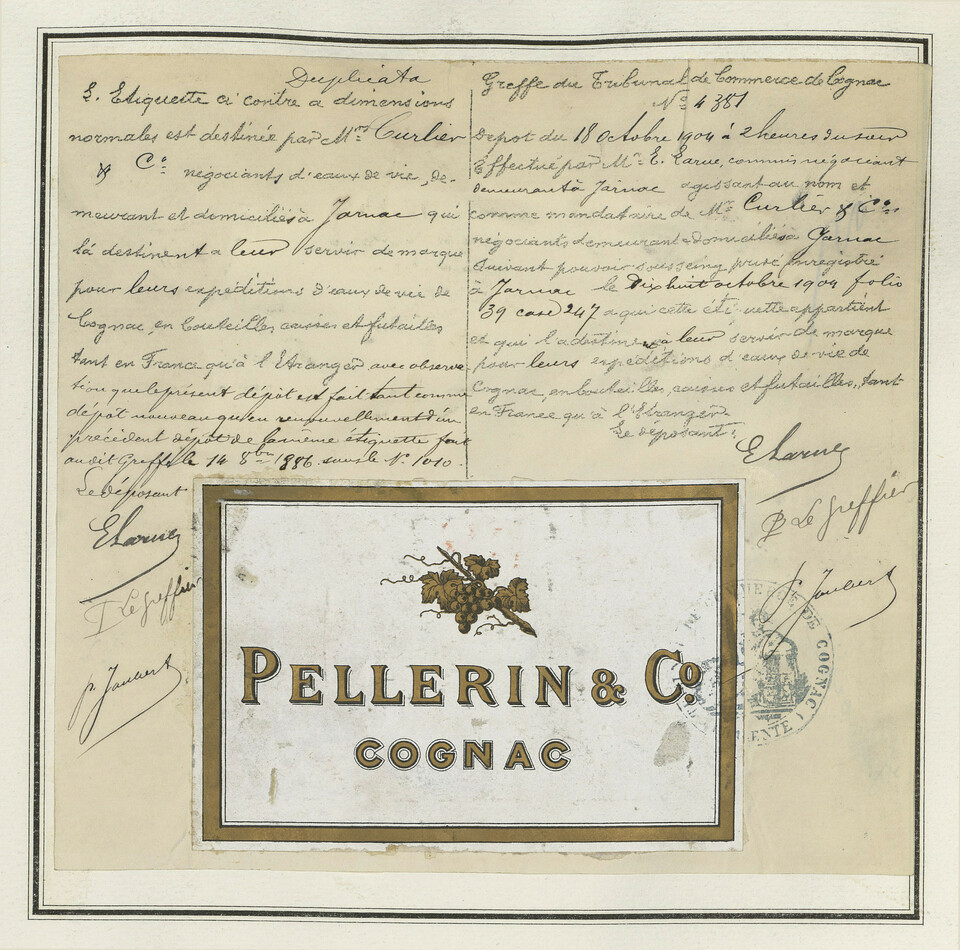 Duplicata
L'Etiquette ci contre a dimensions
normales est destinée par Mrs Curlier
& Co négociants d'eaux de vie, de-
meurant et domiciliés à Jarnac qui
la destinent a leur servir de marque
pour leurs expéditions d'eaux de vie de
Cognac, en bouteilles, caisses et futailles
tant en France qu'à l'Etranger avec observa-
tion que le présent dépôt est fait tant comme
dépôt nouveau qu'en renouvellement d'un
précédent dépôt de la même étiquette fait
au dit Greffe le 14 8bre 1886 sous le No. 1010.
Le déposant
E Larue
P Le Greffier
p. Joubert
Greffe du Tribunal de Commerce de Cognac
No 4381
Depot du 18 Octobre 1904 à 2 heures du soir
Effectué par Mr E. Larue, commis négociant
demeurant à Jarnac agissant au nom et
comme mandataire de Mrs Curlier & Co
négociants demeurant & domiciliés à Jarnac
suivant pouvoir sous seing privé enregistré
à Jarnac le Dix huit octobre 1904 folio
39 case 247 a qui cette étiquette appartient
et qui la destinent à leur servir de marque
pour leurs expéditions d'eaux de vie de
Cognac, en bouteilles, caisses et futailles, tant
en France qu'à l'Etranger.
Le déposant:
E Larue
P Le Greffier
p. Joubert
PELLERIN & Co
COGNAC
DE COGNAC